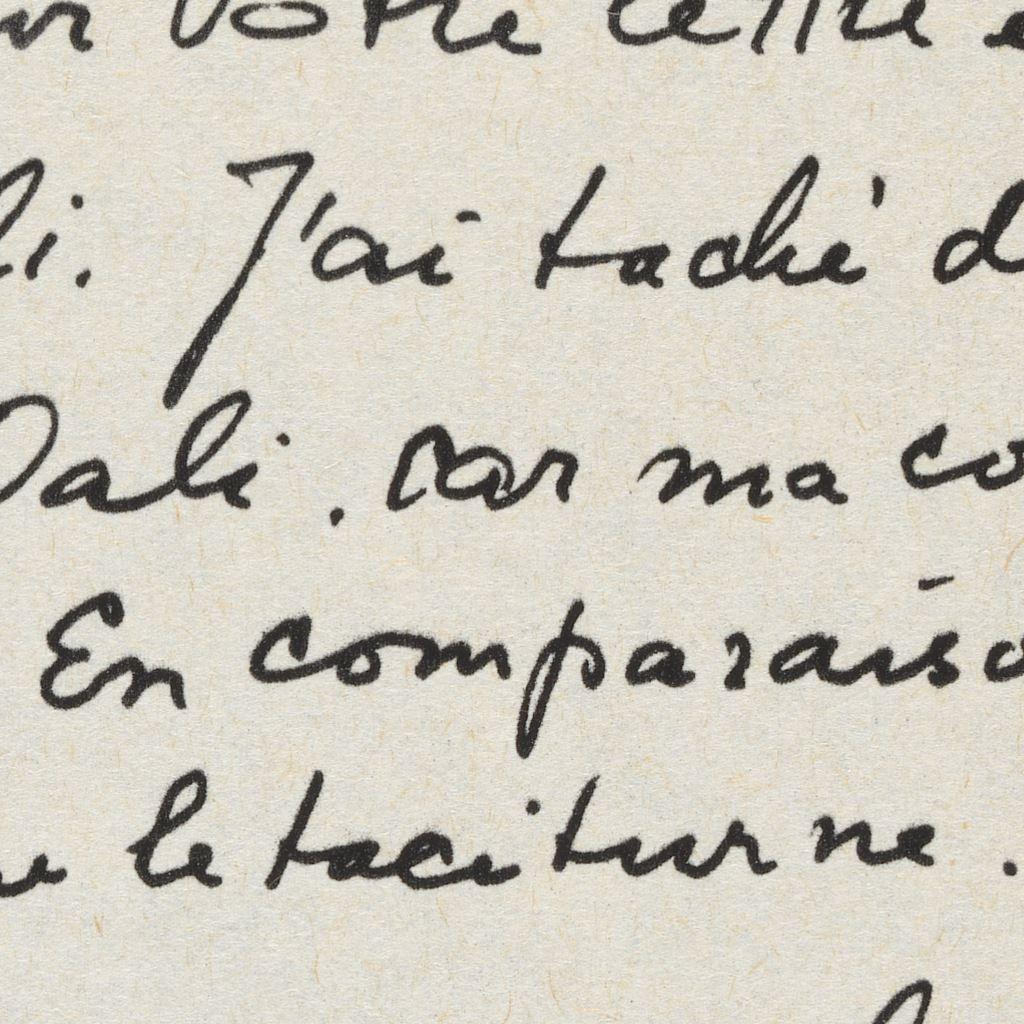 votre lettre
li. J'ai taché d
Dali. car ma co
En comparaiso
le taciturne.